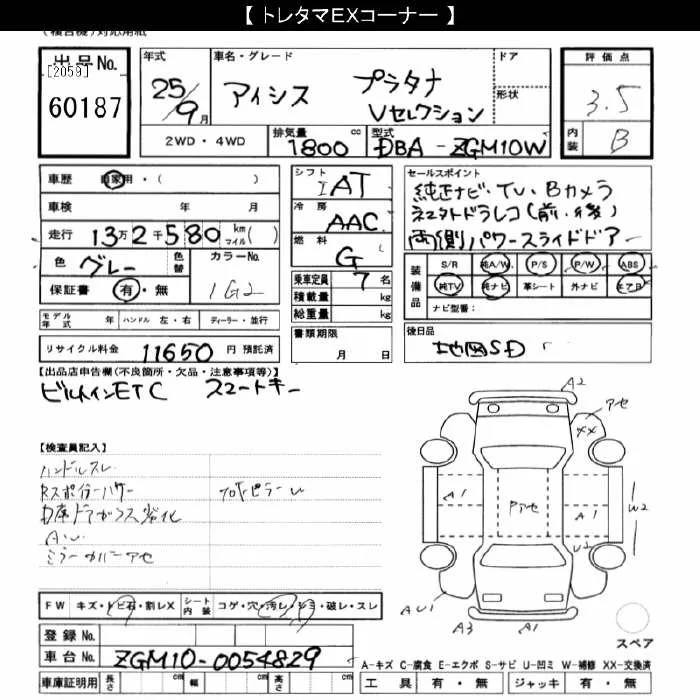 【 トレタマEXコーナー 】
(複合機)対応用紙
出品No.
[2059]
60187
年式
25/9月
車名・グレード
アイシス プラタナ
Vセレクション
ドア
形状
2WD・4WD
排気量
1800 cc
型式
DBA - ZGM10W
評価点
3.5
内装
B
車歴 自家用・( )
車検 年 月
走行 13万2千580 km マイル( )
色 グレー 色替
カラーNo. 1G2
保証書 有・無
シフト IAT
冷房 AAC
燃料 G
乗車定員 7名
積載量 kg
総重量 kg
書類期限
月 日
セールスポイント
純正ナビ・TV・Bカメラ
ネエタドラレコ(前・後)
両側パワースライドドアー
装備品
S/R 純A/W P/S P/W ABS
純TV 純ナビ 革シート 外ナビ エアB
ナビ型番:
モデル年式 年 ハンドル 左・右 ディーラー・並行
リサイクル料金 11650 円 預託済
後日品
地図SD
【出品店申告欄(不良箇所・欠品・注意事項等)】
ビルトインETC スマートキー
【検査員記入】
ハンドルスレ
Rスポイラーハガー
口座ドアガラス劣化
AU
ミラーカバーアセ
フロントピラーU
A2
アセ
XX
A1
Pアセ
A1
W2
U2
AU1
A3
A1
スペア
FW キズ・トビ石・割レX シート内装 コゲ・穴・汚レ・シミ・破レ・スレ
登録No.
車台No. ZGM10-0054829
車庫証明用 長さ cm 幅 cm 高さ cm
A-キズ C-腐食 E-エクボ S-サビ U-凹ミ W-補修 XX-交換済
工具 有・無 ジャッキ 有・無